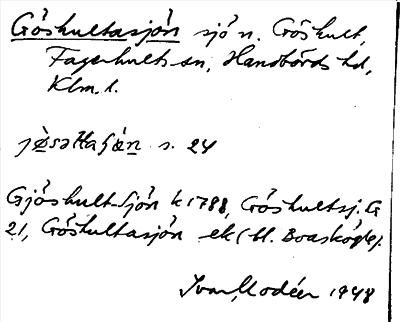 Göshultasjön sjö n. Göshult,
Fagerhults sn, Handbörds hd,
Klm. l.
jø̀səltaʃø̀n s. 24
Gjöshult-Sjön k 1788, Göshultsj. G
21, Göshultasjön ek (bl. Boaskögle).
Ivar Modéer 1948